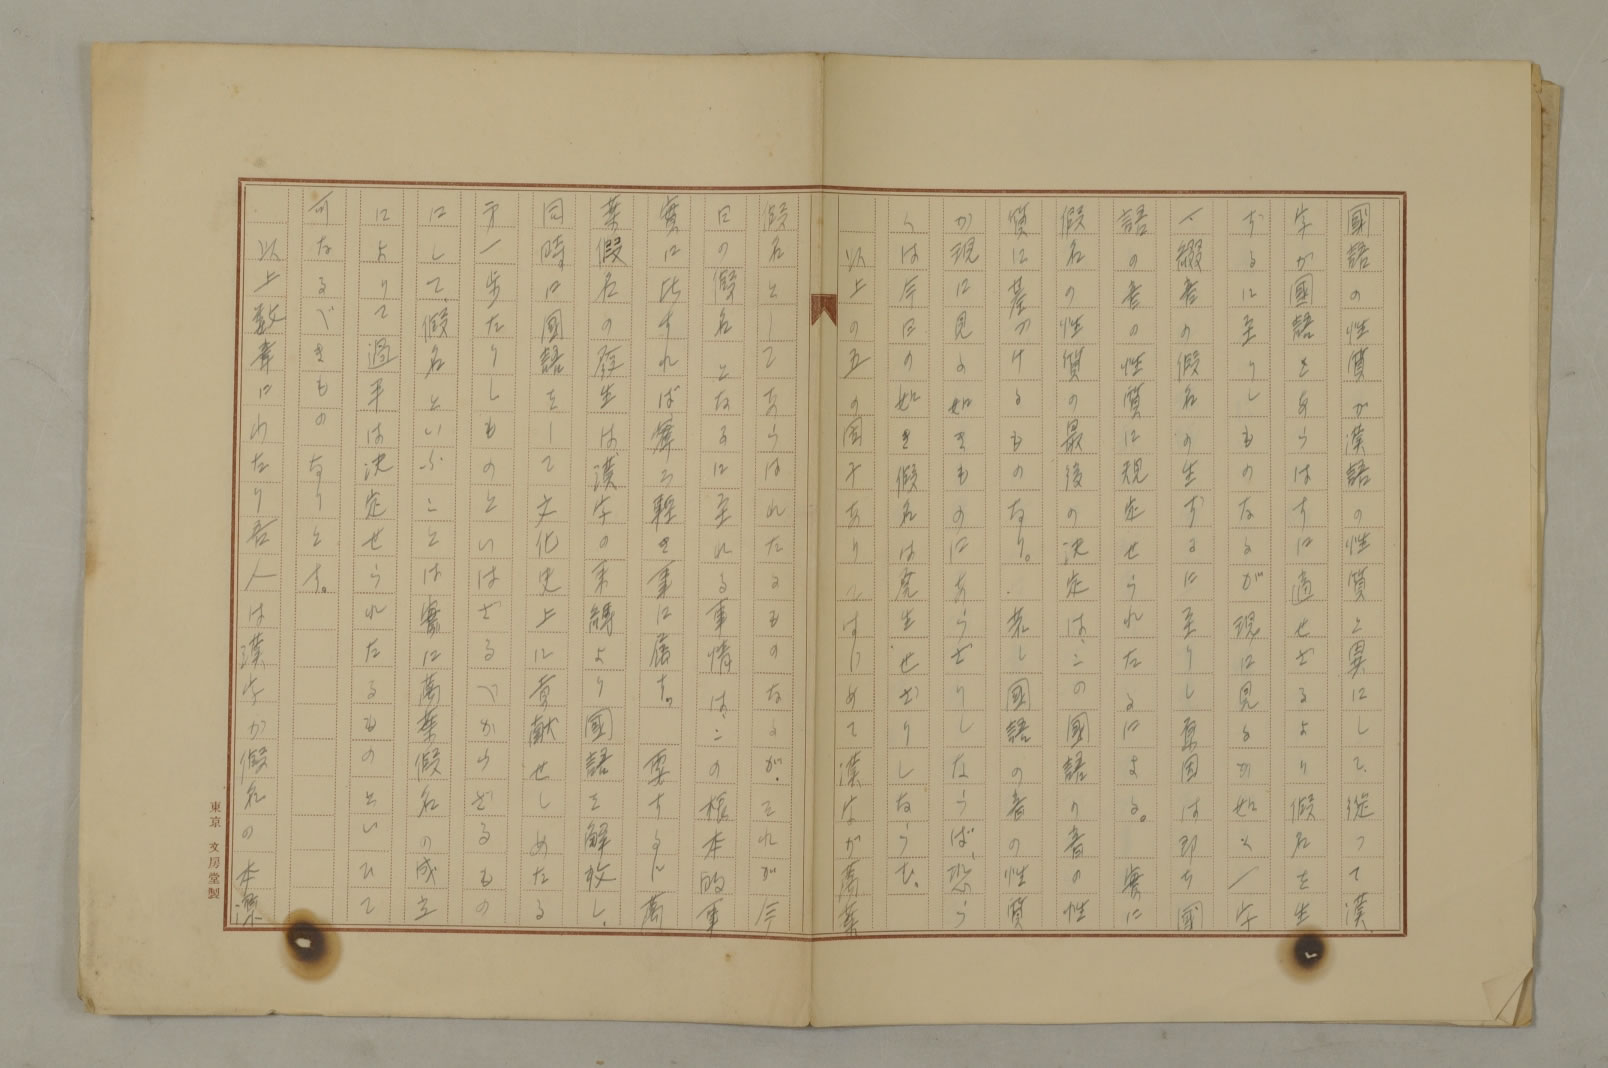 國語の性質が漢語の性質と異にして、從つて漢
字が國語をあらはすに適せざるより假名を生
ずるに至りしものなるが現に見るが如く一字
一綴音の假名の生ずるに至りし原因は即ち國
語の音の性質に規定せられたるによる。實に
假名の性質の最後の決定は、この國語の音の性
質に基づけるものなり。若し國語の音の性質
が現に見る如きものにあらざりしならば、恐ら
くは今日の如き假名は發生せざりしならむ。
以上の五の因子ありてはじめて漢字が萬葉
假名としてあらはれたるものなるが、それが今
日の假名となるに至れる事情は、この根本的事
實に比すれば寧ろ輕き事に屬す。要するに萬
葉假名の發生は漢字の束縛より國語を解放し、
同時に國語をして文化史上に貢献せしめたる
第一歩たりしものといはざるべからざるもの
にして、假名といふことは實に萬葉假名の成立
によりて過半は決定せられたるものといひて
可なるべきものなりとす。
以上數章にわたり吾人は漢字が假名の本源
東京 文房堂製